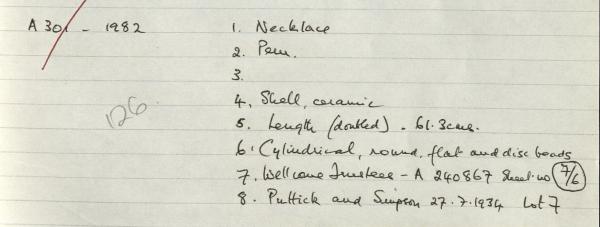 A 301 - 1982
1. Necklace
2. Peru.
3.
4. Shell, ceramic
5. Length (doubled) - 61.3cms.
6. Cylindrical, round, flat and disc beads
7. Wellcome Trustees - A 240867 Sheet no 7/6
8. Puttick and Simpson 27.7.1934 Lot 7
126